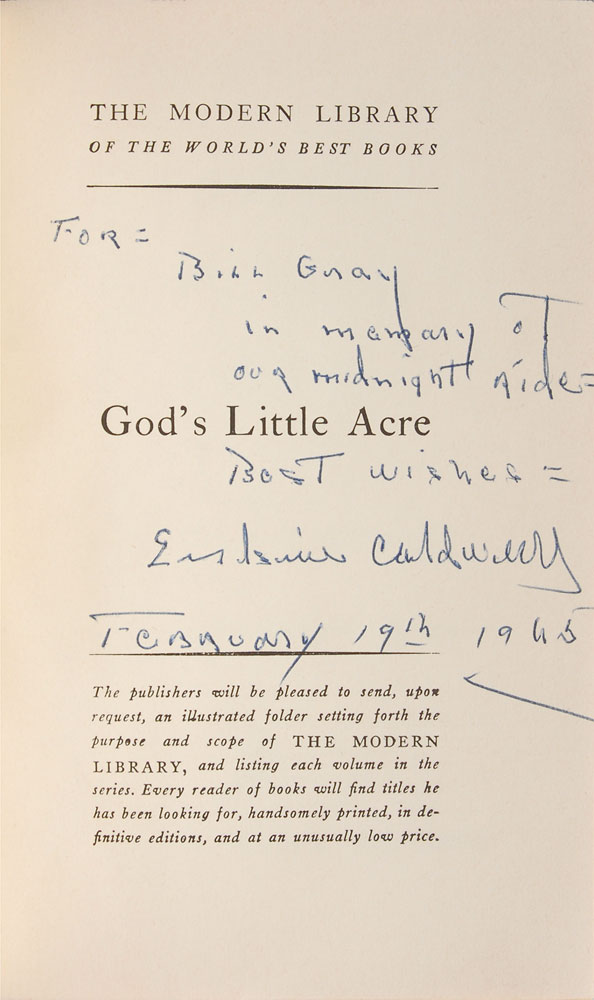 THE MODERN LIBRARY
OF THE WORLD'S BEST BOOKS
FOR =
Bill Gray
in memory of
our midnight ride =
God's Little Acre
Best wishes =
Erskine Caldwell
February 19th 1945
The publishers will be pleased to send, upon
request, an illustrated folder setting forth the
purpose and scope of THE MODERN
LIBRARY, and listing each volume in the
series. Every reader of books will find titles he
has been looking for, handsomely printed, in de-
finitive editions, and at an unusually low price.